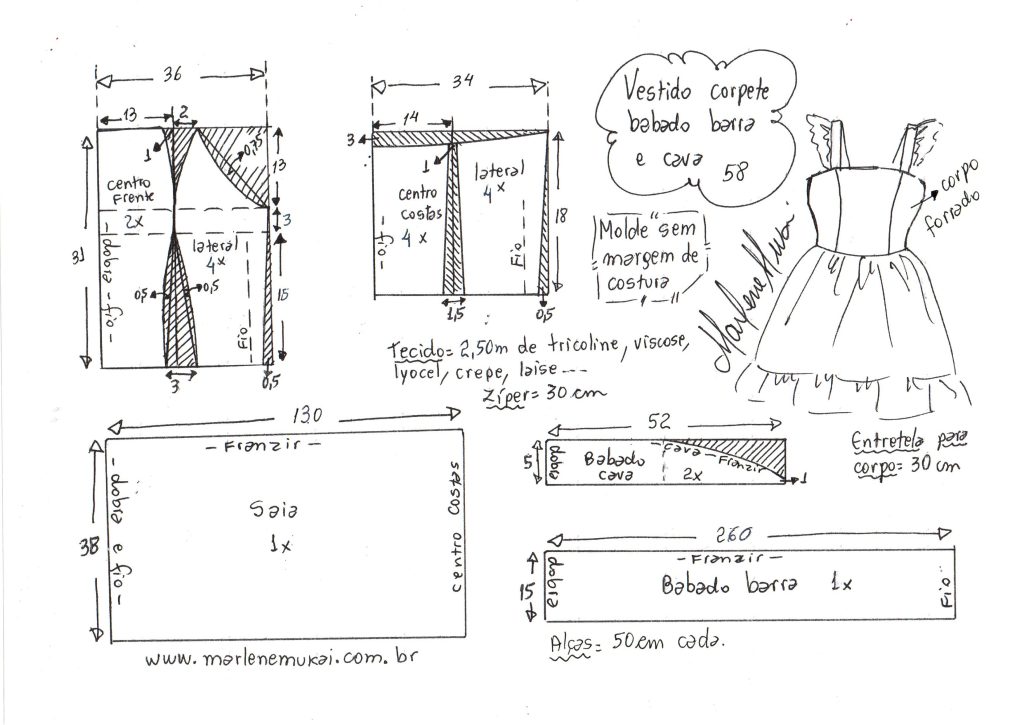 36
13
2
1
0,75
13
centro
frente
2x
3
lateral
4x
- dobra - fio -
31
0,5
0,5
15
Fio
3
0,5
34
14
3
1
lateral
4x
centro
costas
4x
- fio -
Fio
18
1,5
0,5
Vestido corpete
babado barra
e cava
58
Molde sem
margem de
costura
corpo
forrado
Marlene Mukai
Tecido= 2,50m de tricoline, viscose,
lyocel, crepe, laise ---
Zíper= 30 cm
130
- Franzir -
- dobra e fio -
38
Saia
1x
centro costas
52
5
dobra
Babado
cava
- cava - Franzir -
2x
1
Entretela para
corpo= 30 cm
260
- Franzir -
15
dobra
Babado barra 1x
Fio
Alças= 50 cm cada.
www.marlenemukai.com.br